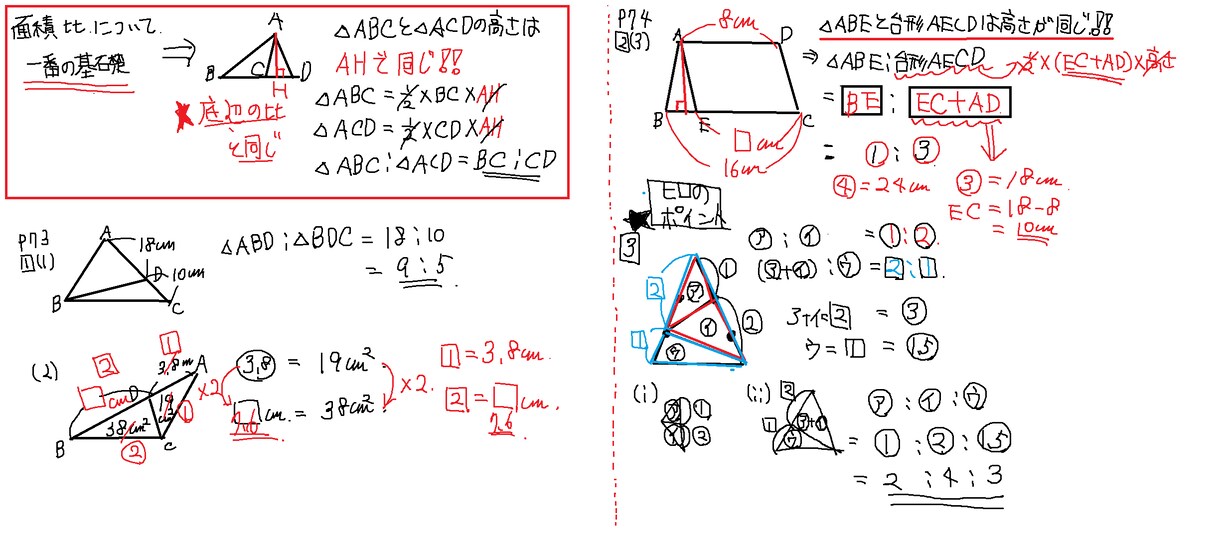 面積比について
一番の基石楚
⇒
A
B C D
H
★底辺の比
と同じ
△ABCと△ACDの高さは
AHと同じ!!
△ABC = 1/2 × BC × AH
△ACD = 1/2 × CD × AH
△ABC : △ACD = BC : CD
P73
1(1)
A
18cm
D 10cm
B C
△ABD : △BDC = 18 : 10
= 9 : 5
(2)
2 1
□cm 3.8m A
D 19cm² ①
B 38cm² C
②
×2
3.8 = 19cm²
□cm = 38cm²
7.6
×2.
1 = 3.8cm.
2 = □cm.
7.6
P74
2(3)
8cm
A D
B E C
□cm
16cm
△ABEと台形AECDは高さが同じ!!
⇒ △ABE : 台形AECD → 1/2 × (EC+AD) × 高さ
= BE : EC+AD
= ① : ③
④ = 24cm ③ = 18cm.
EC = 18-8
= 10cm
★ヒロの
ポイント
3
2 ①
ア
イ ②
1 ウ
ア : イ = ① : ②
(ア+イ) : ウ = 2 : 1
ア+イ=2 = ③
ウ = 1 = 1.5
(i)
ア ①
イ ②
(ii)
2
1 ウ ア+イ
ア : イ : ウ
= ① : ② : 1.5
= 2 : 4 : 3